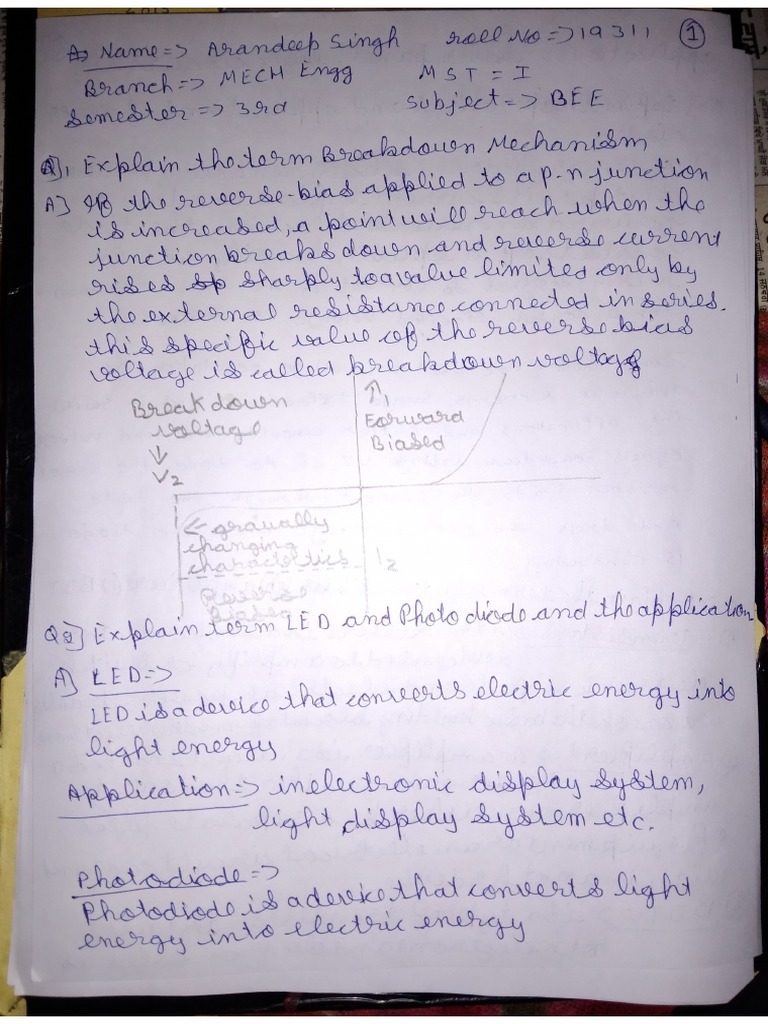 Name => Arandeep Singh roll No => 19311 1
Branch => MECH Engg MST = I
Semester => 3rd Subject => BEE
Q1, Explain the term Breakdown Mechanism
A] If the reverse-bias applied to a p-n junction
is increased, a point will reach when the
junction breaks down and reverse current
rises sp sharply to a value limited only by
the external resistance connected in series.
this specific value of the reverse bias
voltage is called breakdown voltage
Breakdown
voltage
V2
↑1
Forward
Biased
<- gradually
changing
characteristics
I2
Reverse
Biased
Q2] Explain term LED and Photodiode and the application
A] LED =>
LED is a device that converts electric energy into
light energy
Application => in electronic display system,
light display system etc.
Photodiode =>
Photodiode is a device that converts light
energy into electric energy